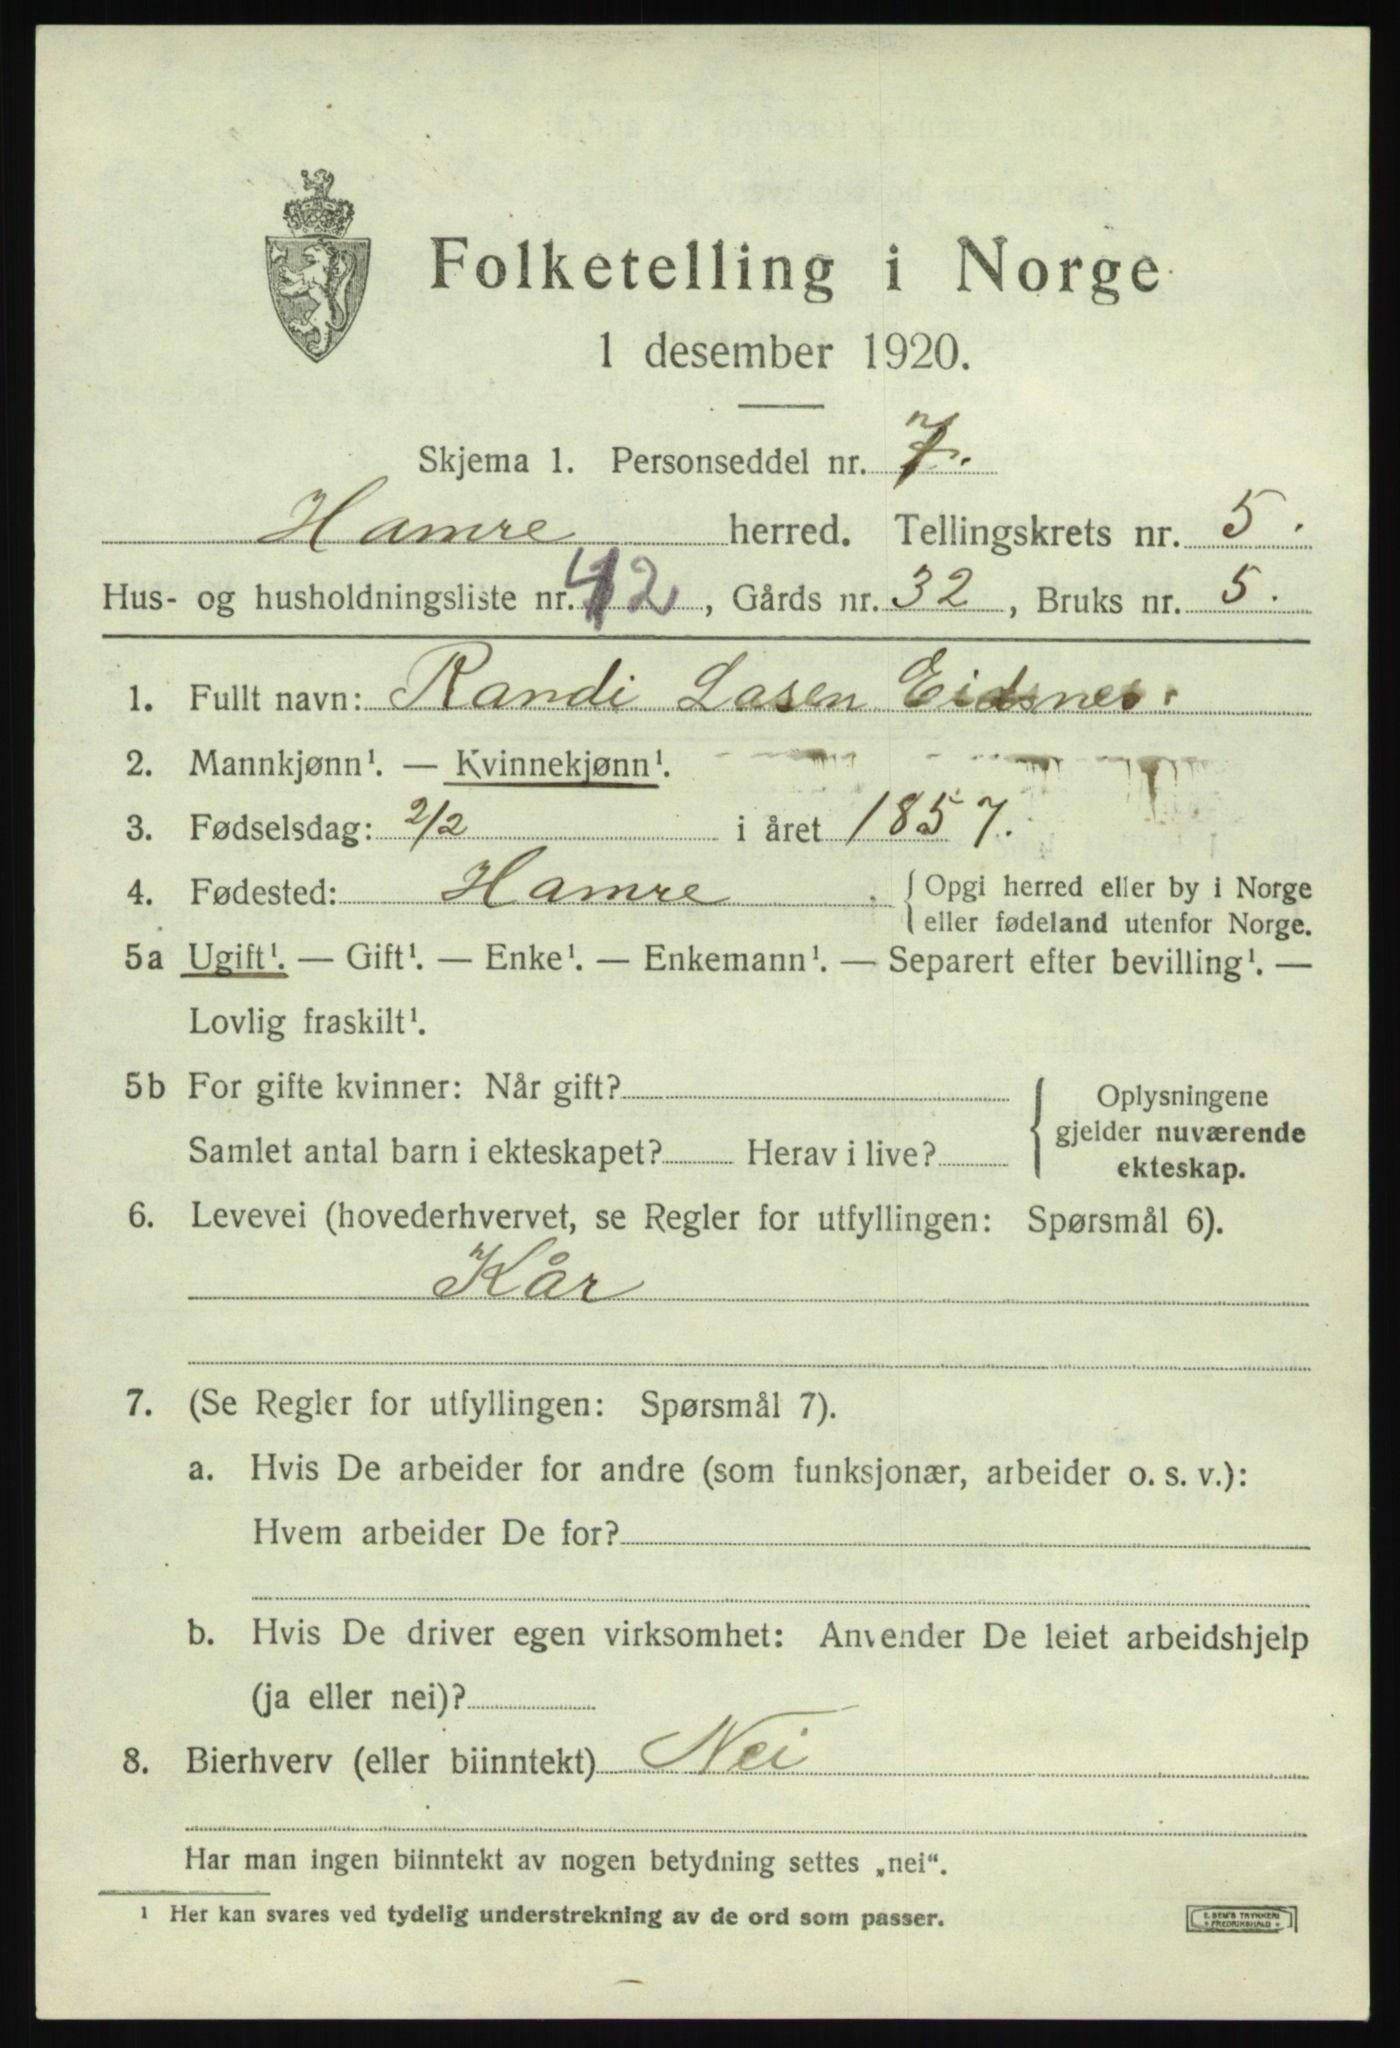 Folketelling i Norge
1 desember 1920.
Skjema 1. Personseddel nr. 7.
Hamre herred. Tellingskrets nr. 5.
Hus- og husholdningsliste nr. 42, Gårds nr. 32, Bruks nr. 5.
1. Fullt navn: Randi Lasen Eidsnes.
2. Mannkjønn¹. — Kvinnekjønn¹.
3. Fødselsdag: 2/2 i året 1857.
4. Fødested: Hamre. { Opgi herred eller by i Norge
eller fødeland utenfor Norge.
5a Ugift¹. — Gift¹. — Enke¹. — Enkemann¹. — Separert efter bevilling¹. —
Lovlig fraskilt¹.
5b For gifte kvinner: Når gift?
Samlet antal barn i ekteskapet? Herav i live?
{ Oplysningene
gjelder nuværende
ekteskap.
6. Levevei (hovederhvervet, se Regler for utfyllingen: Spørsmål 6).
Kår
7. (Se Regler for utfyllingen: Spørsmål 7).
a. Hvis De arbeider for andre (som funksjonær, arbeider o. s. v.):
Hvem arbeider De for?
b. Hvis De driver egen virksomhet: Anvender De leiet arbeidshjelp
(ja eller nei)?
8. Bierhverv (eller biinntekt) Nei
Har man ingen biinntekt av nogen betydning settes „nei“.
¹ Her kan svares ved tydelig understrekning av de ord som passer.
E. SEM'S TRYKKERI
• FREDRIKSHALD •